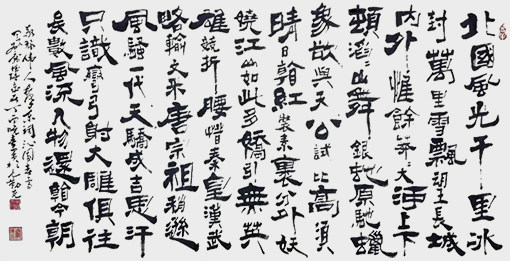 北國風光千里冰
封萬里雪飄望長城
内外惟餘莽莽大河上下
頓滔山舞銀蛇原馳蠟
象欲與天公試比高須
晴日看紅裝素裹分外妖
嬈江山如此多嬌引無數英
雄競折腰惜秦皇漢武
略輸文采唐宗祖稍遜
風騷一代天驕成吉思汗
只識彎弓射大雕俱往
矣數風流人物還看今朝
偉人毛澤東詞沁園春雪